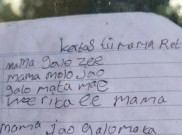 katas tii mama Rot
mama galo zee
mama molo Jao
galo mata mee
wee ribaee mama
mama Jao galomata